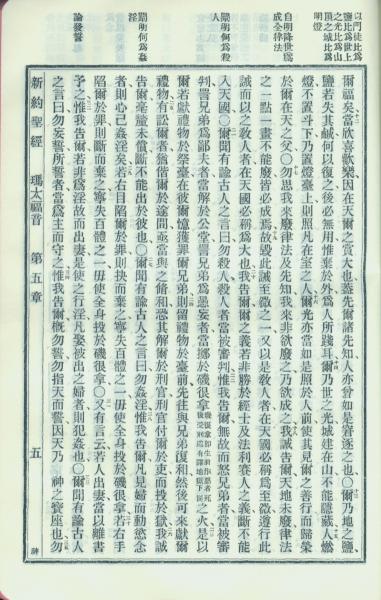 以門徒比為
鹽比為世上
之光比為山
頂之城比為
明燈
自明降世為
成全律法
闡明何為殺
人
闡明何為姦
淫
論發誓
爾福矣當欣喜歡樂因在天爾之賞大也蓋先爾諸先知人亦曾如是窘逐之也〇爾乃地之鹽
鹽若失其鹹何以復之後必無用惟棄於外為人所踐耳爾乃世之光城建在山不能隱藏人燃
燈不置斗下乃置燈臺上則照凡在室之人爾光亦當如是照於人前使其見爾之善行而歸榮
於爾在天之父〇勿思我來廢律法及先知我來非欲廢之乃欲成之我誠告爾天地未廢律法
之一點一畫不能廢皆必成焉故毀此至微之一又以是教人者在天國必稱為至微遵行此
誡而以之教人者在天國必稱為大也我告爾爾之義若非勝於經士及法利賽人之義斷不能
入天國〇爾聞有諭古人之言曰勿殺人殺人者當被審判惟我告爾無故而怒兄弟者當被審
判詈兄弟為鄙夫者當解於公堂詈兄弟為愚妄者當擲於磯很拿之火是以
爾若獻禮物於祭臺在彼爾憶獲罪爾兄弟則留禮物於臺前先往與兄弟復和然後可來獻爾
禮物有訟爾者猶偕爾於途間亟當與之脩和恐其解爾於刑官刑官付爾於吏而投於獄我誠
告爾毫釐未償斷不能出於彼也〇爾聞有諭古人之言曰勿姦淫惟我告爾凡見婦而動慾念
者則心已姦淫矣若右目陷爾於罪則抉而棄之寧失百體之一毋使全身投於磯很拿若右手
陷爾於罪則斷而棄之寧失百體之一毋使全身投於磯很拿〇又有言云若人出妻當以離書
予之惟我告爾若非為淫故而出妻是使之行淫凡娶被出之婦者則犯姦也〇爾聞有諭古人
之言曰勿妄誓所誓者當為主而守之惟我告爾概勿誓勿指天而誓因天乃 神之寶座也勿
新約聖經 瑪太福音 第五章 五